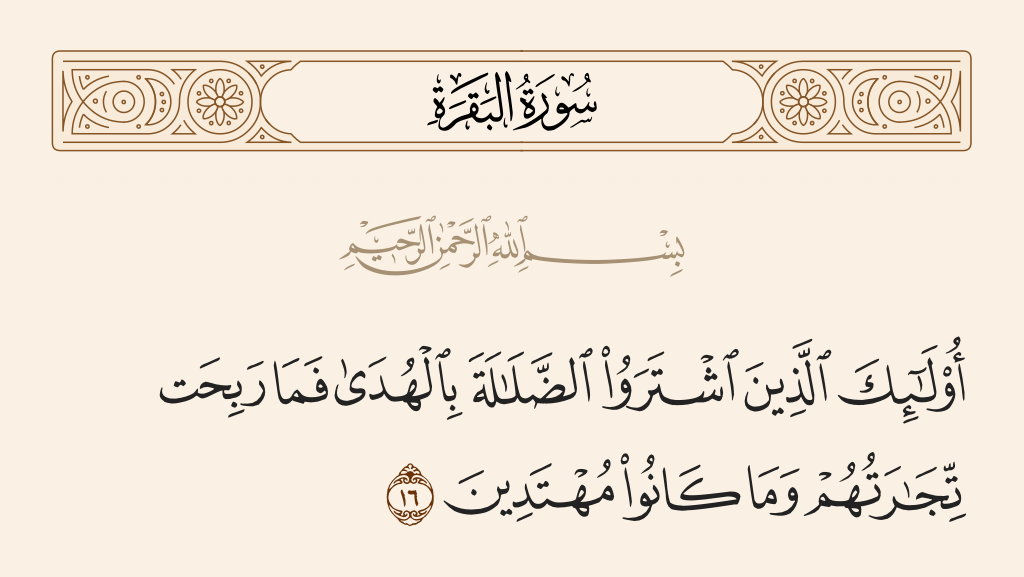 سُورَةُ البَقَرَةِ
بِسْمِ ٱللَّهِ ٱلرَّحْمَٰنِ ٱلرَّحِيمِ
أُوْلَٰٓئِكَ ٱلَّذِينَ ٱشْتَرَوُاْ ٱلضَّلَٰلَةَ بِٱلْهُدَىٰ فَمَا رَبِحَت
تِّجَٰرَتُهُمْ وَمَا كَانُواْ مُهْتَدِينَ ١٦